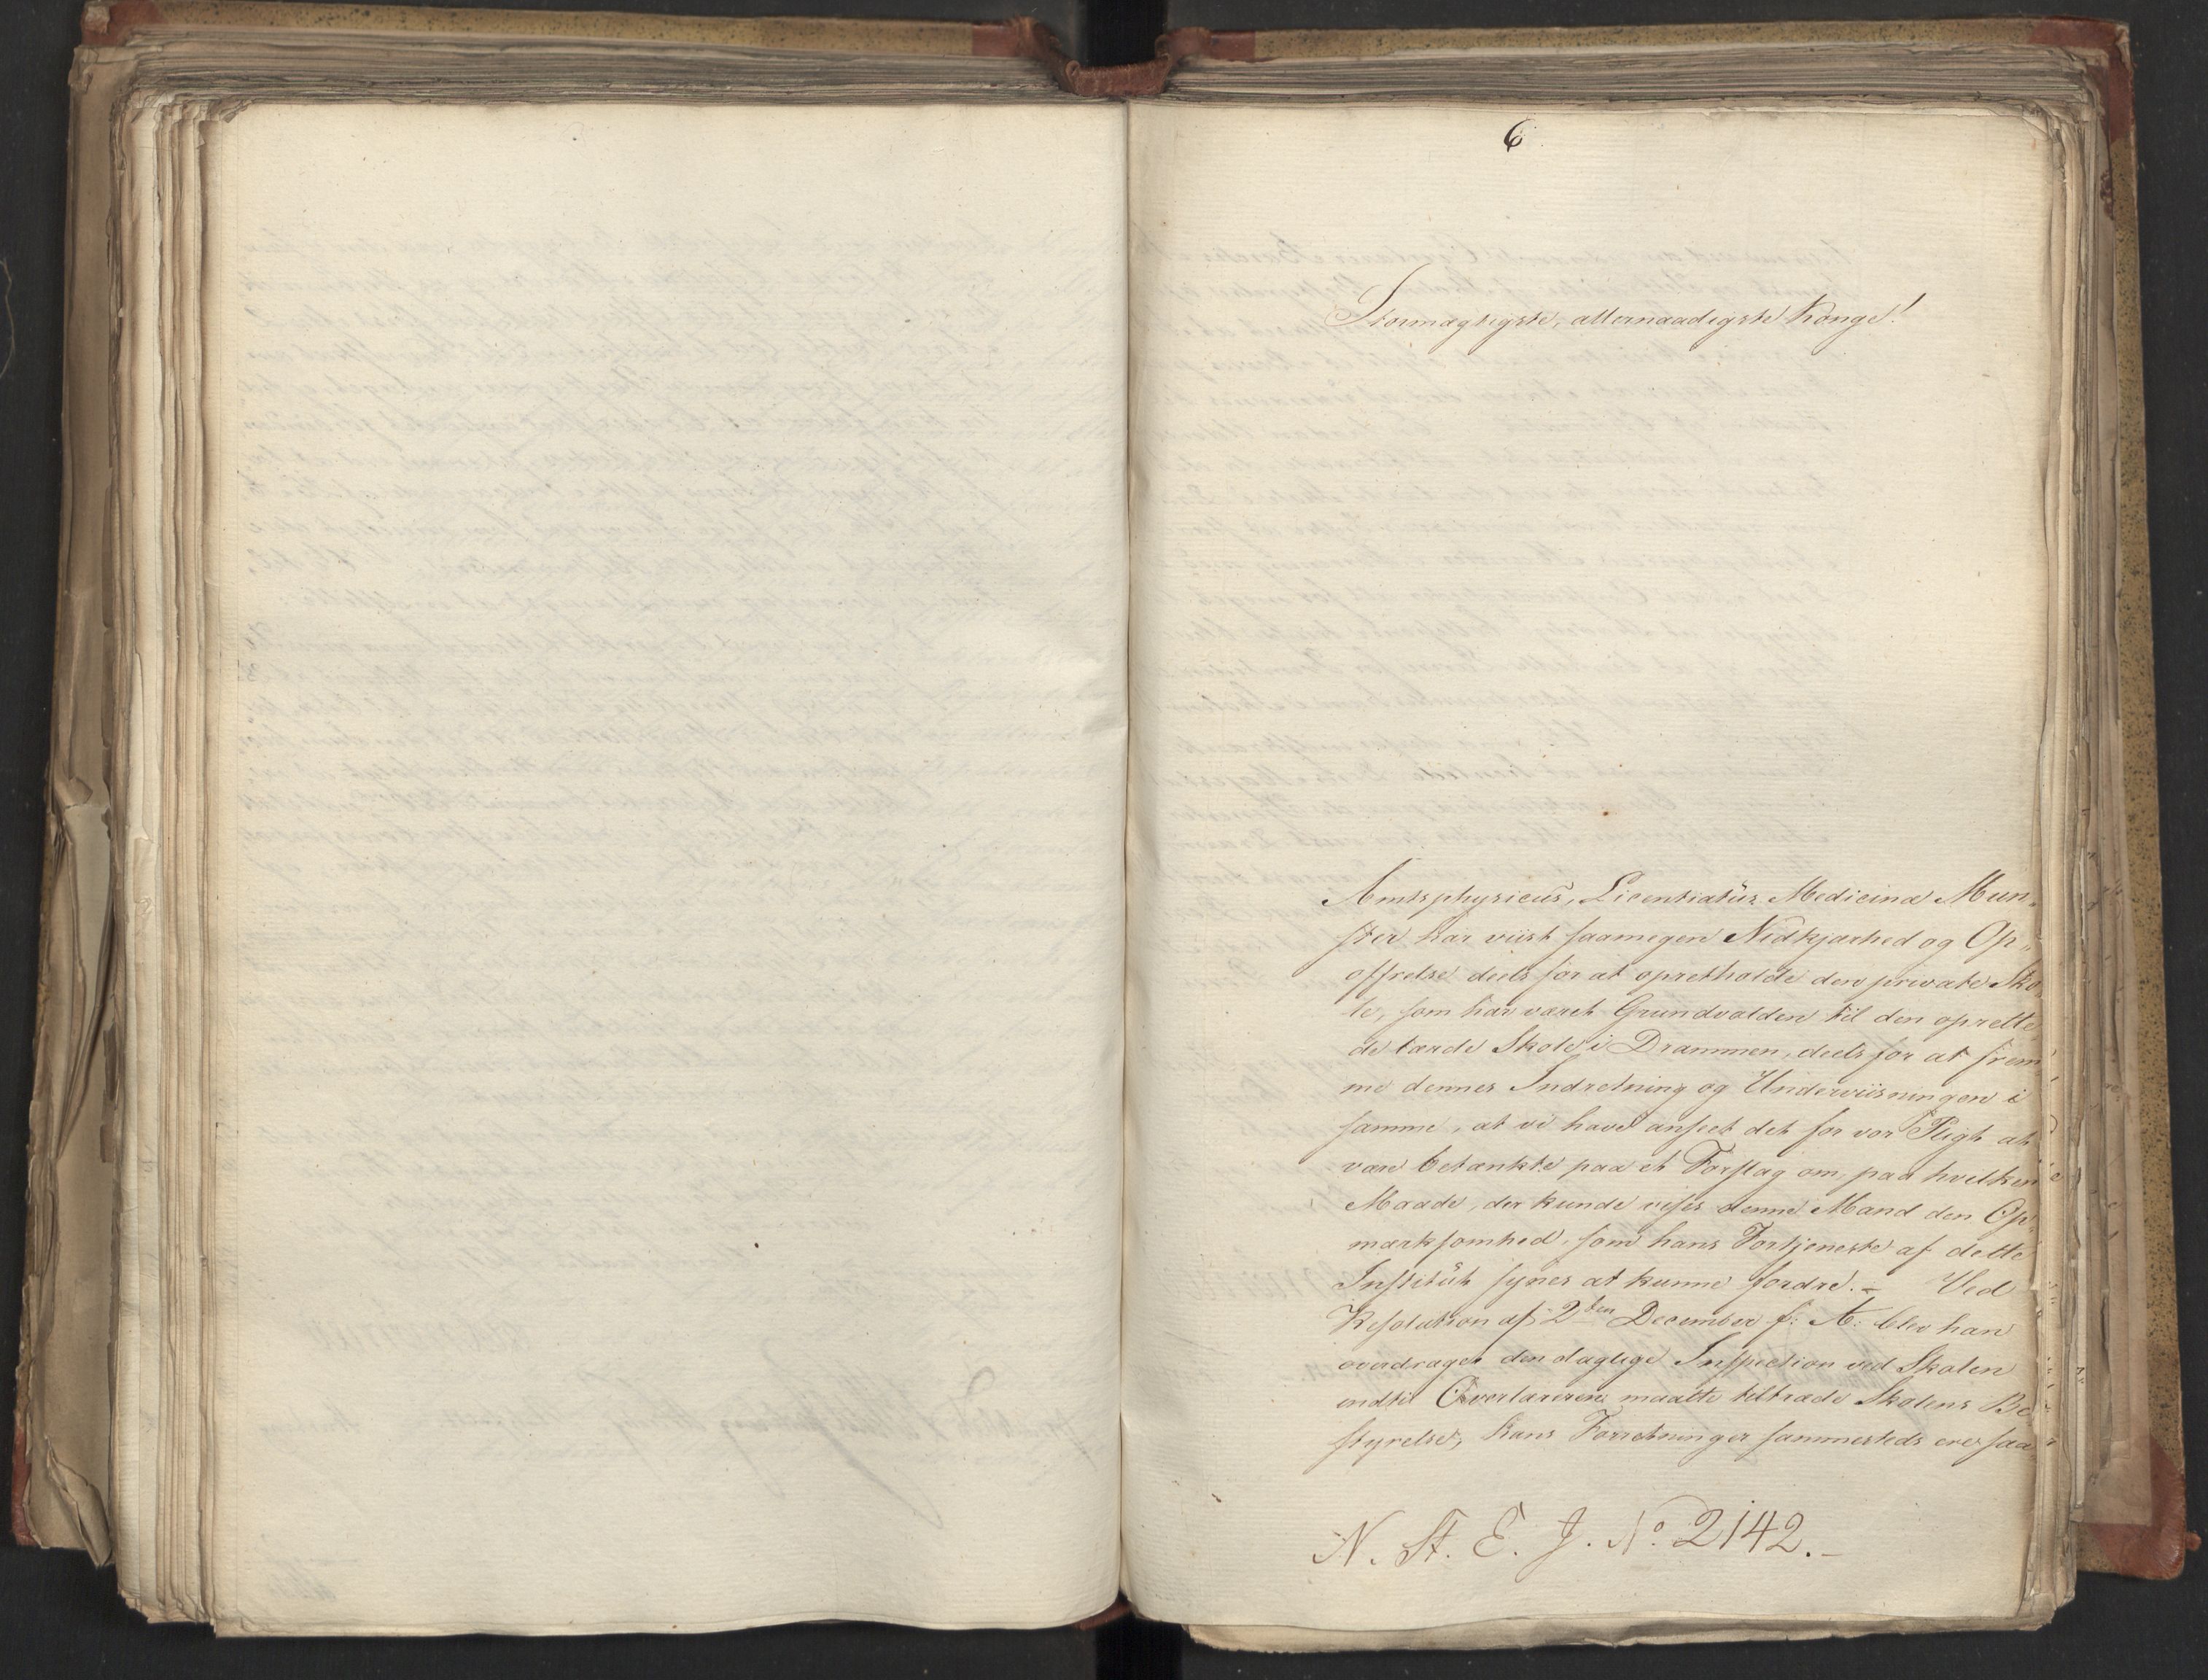 6
Stormægtigste, allernaadigste Konge!
Amtsphysicus, Licentiatus Medicinæ Mun„
ster har viist saamegen Nidkjærhed og Op„
offrelse deels for at opretholde den private Sko„
le, som har været Grundvolden til den oprette„
de lærde Skole i Drammen, deels for at frem„
me dennes Indretning og Underviisningen i
samme, at vi have anseet det for vor Pligt at
være betænkte paa et Forslag om, paa hvilken
Maade, der kunde vises denne Mand den Op„
mærksomhed, som hans Fortjeneste af dette
Institut synes at kunne fordre. – Ved
Resolution af 2den December f: A: blev han
overdraget den daglige Inspection ved Skolen
indtil Overlæreren maatte tiltræde Skolens Be„
styrelse, hans Forretninger sammesteds ere saa
N. St. E. J. No. 2142.–